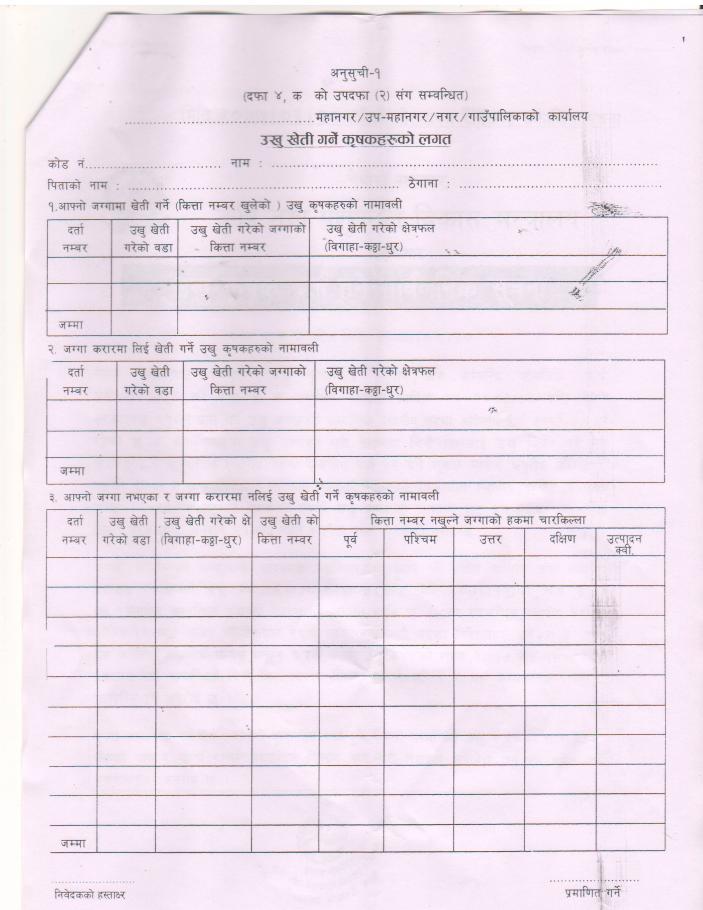 अनुसुची-१
(दफा ४, क को उपदफा (२) संग सम्वन्धित)
..............................महानगर/उप-महानगर/नगर/गाउँपालिकाको कार्यालय
उखु खेती गर्ने कृषकहरुको लगत
कोड नं.............................. नाम : ............................................................
पिताको नाम : .................................................. ठेगाना : ....................................
१.आफ्नो जग्गामा खेती गर्ने (कित्ता नम्बर खुलेको ) उखु कृषकहरुको नामावली
दर्ता नम्बर उखु खेती गरेको वडा उखु खेती गरेको जग्गाको कित्ता नम्बर उखु खेती गरेको क्षेत्रफल (विगाहा-कठ्ठा-धुर)
जम्मा
२. जग्गा करारमा लिई खेती गर्ने उखु कृषकहरुको नामावली
दर्ता नम्बर उखु खेती गरेको वडा उखु खेती गरेको जग्गाको कित्ता नम्बर उखु खेती गरेको क्षेत्रफल (विगाहा-कठ्ठा-धुर)
जम्मा
३. आफ्नो जग्गा नभएका र जग्गा करारमा नलिई उखु खेती गर्ने कृषकहरुको नामावली
दर्ता नम्बर उखु खेती गरेको वडा उखु खेती गरेको क्षे (विगाहा-कठ्ठा-धुर) उखु खेती को कित्ता नम्बर कित्ता नम्बर नखुल्ने जग्गाको हकमा चारकिल्ला
पूर्व पश्चिम उत्तर दक्षिण उत्पादन क्वी.
जम्मा
निवेदकको हस्ताक्षर प्रमाणित गर्ने